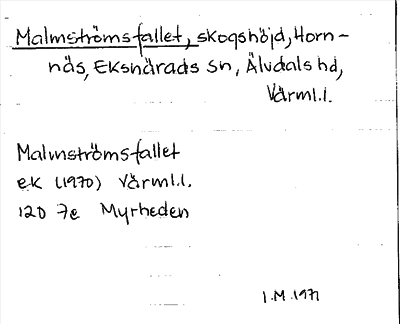 Malmströmsfallet, skogshöjd, Horn-
näs, Eksnärads sn, Älvdals hd,
Värml.l.
Malmströmsfallet
ek (1970) Värml.l.
12D 7e Myrheden
I.M. 1971